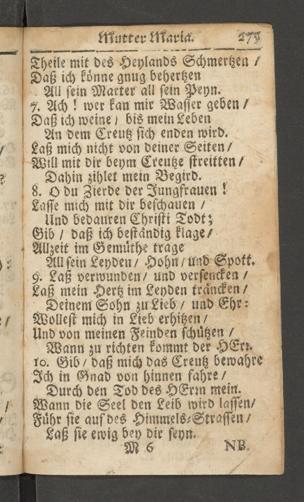 Mutter Maria. 273
Theile mit des Heylands Schmertzen /
Daß ich könne gnug behertzen
All sein Marter all sein Peyn.
7. Ach ! wer kan mir Wasser geben /
Daß ich weine / bis mein Leben
An dem Creutz sich enden wird.
Laß mich nicht von deiner Seiten /
Will mit dir beym Creutze streitten /
Dahin zihlet mein Begird.
8. O du Zierde der Jungfrauen !
Lasse mich mit dir beschauen /
Und bedauren Christi Todt;
Gib / daß ich beständig klage /
Allzeit im Gemüthe trage
All sein Leyden / Hohn / und Spott.
9. Laß verwunden / und versencken /
Laß mein Hertz im Leyden träncken /
Deinem Sohn zu Lieb / und Ehr:
Wollest mich in Lieb erhitzen /
Und von meinen Feinden schützen /
Wann zu richten kommt der HErr.
10. Gib / daß mich das Creutz bewahre
Ich in Gnad von hinnen fahre /
Durch den Tod des HErrn mein.
Wann die Seel den Leib wird lassen /
Führ sie auf des Himmels-Strassen /
Laß sie ewig bey dir seyn.
M 6 NB.